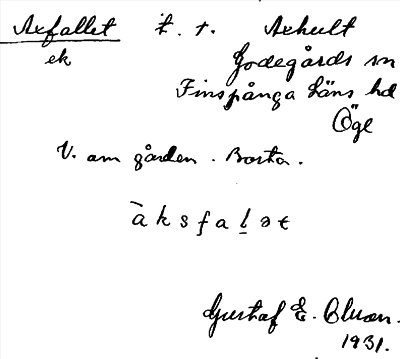 Axfallet t. t. Axhult
ek Godegårds sn
Finspånga läns hd
Ögl
V. om gården. Borta.
àksfaḷət
Gustaf E.
1931.